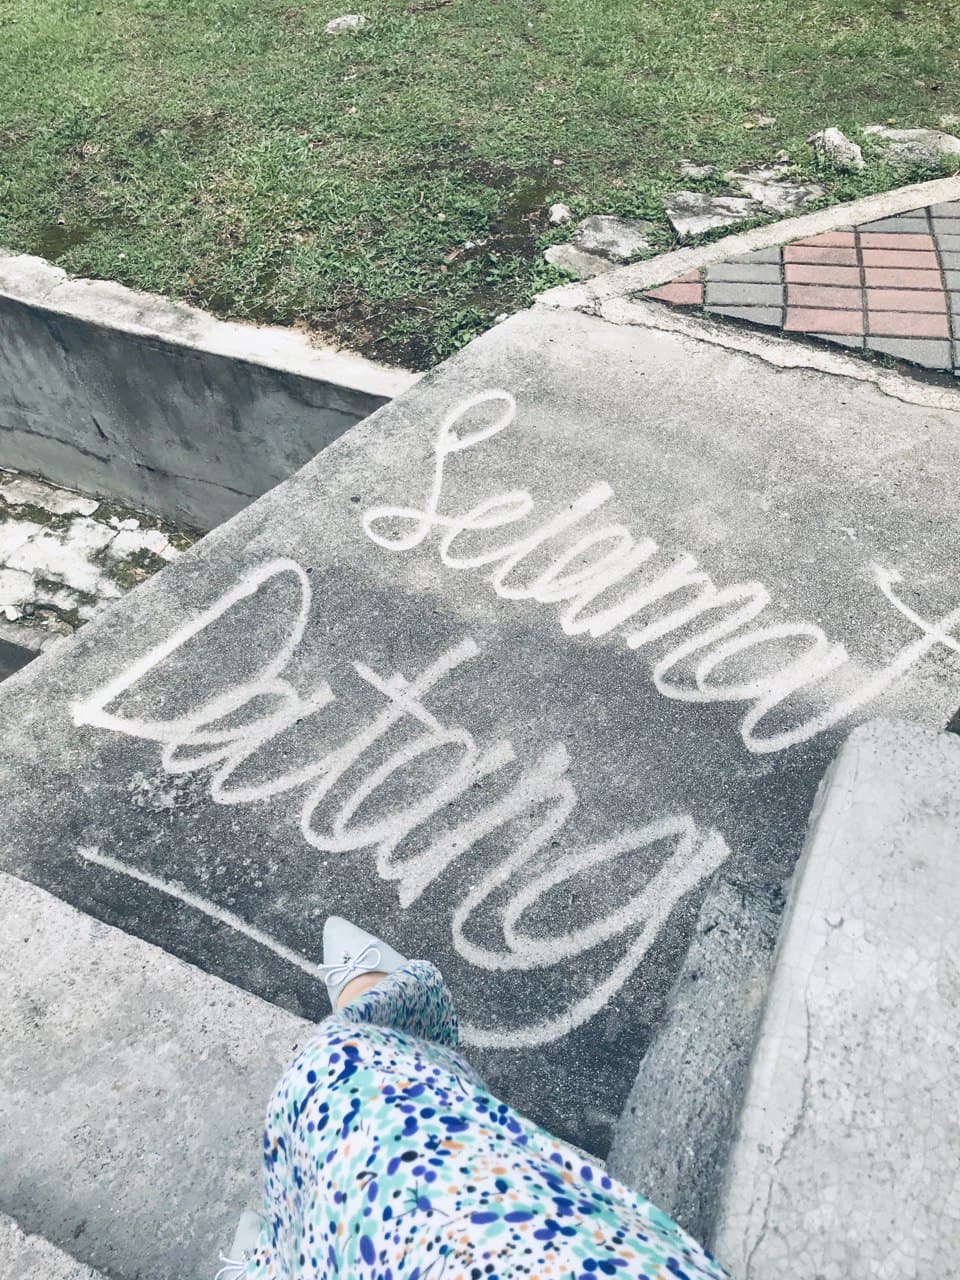 Selamat
Datang